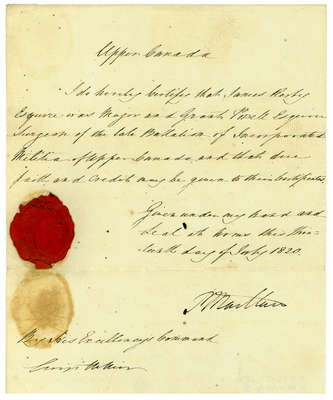 Upper Canada
I do hereby Certify that James Kerby
Esquire was Major and Grant Powell Esquire
Surgeon of the late Battalion of Incorporated
Militia of Upper Canada, and that due
faith and Credit may be given to their Certificates
Given under my Hand and
Seal at this
day of July 1820.
P Maitland
By His Excellency's Command